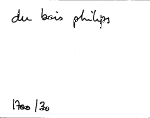 du bois philips
1700/30